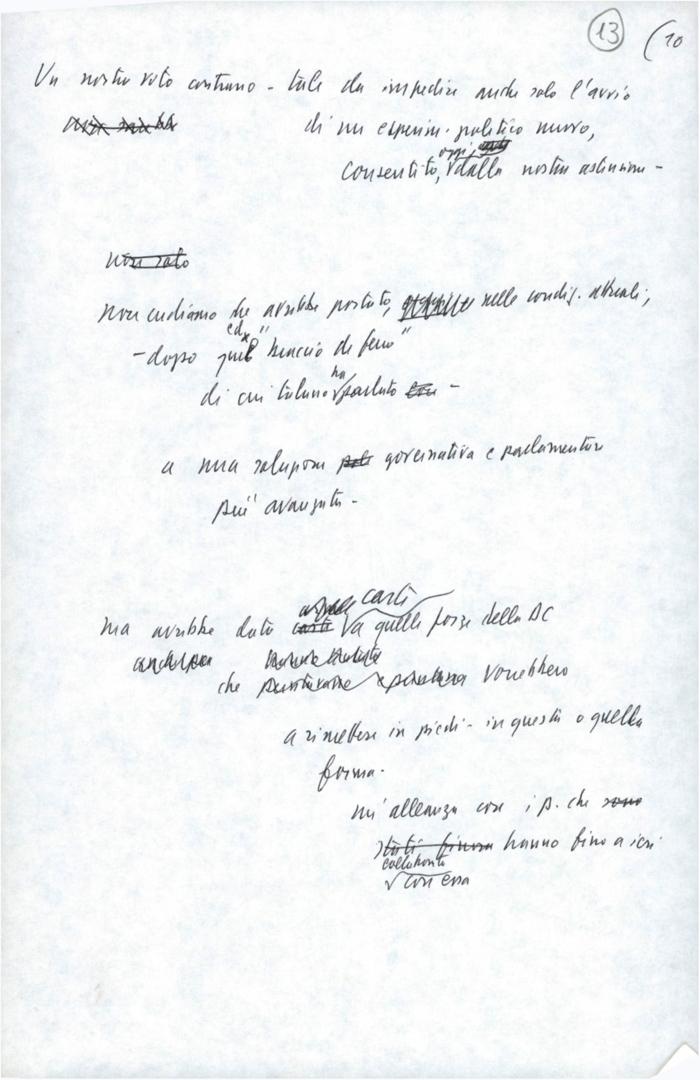 13 (10
Un nostro voto contrario - tale da impedire anche solo l'avvio
di un esperim. politico nuovo,
oggi,
consentito, dalla nostra astensione -
non solo
non crediamo che avrebbe portato, nelle condiz. attuali,
- dopo quel "braccio di ferro"
ha
di cui taluno parlato -
a una soluzione governativa e parlamentare
più avanzata -
carte
ma avrebbe dato a quelle forze della DC
che vorrebbero
a rimettere in piedi - in questa o quella
forma -
un'alleanza con i p. che sono
stati finora hanno fino a ieri
collaborato
con essa